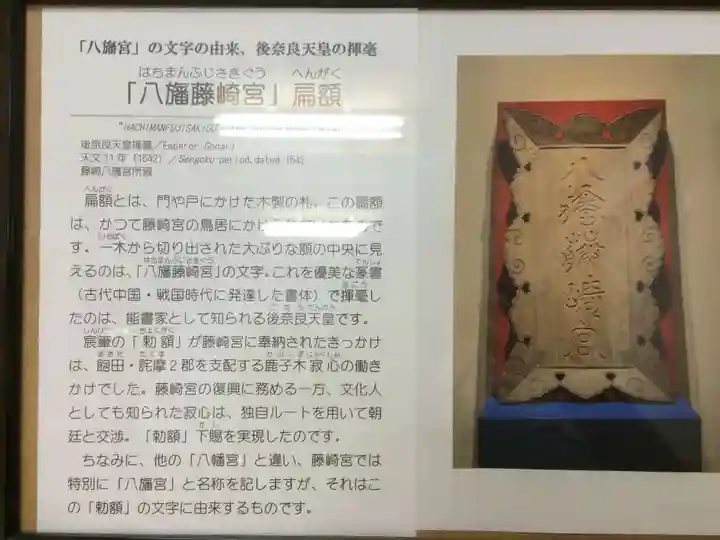 「八旛宮」の文字の由来、後奈良天皇の揮毫
はちまんふじさきぐう へんがく
「八旛藤崎宮」扁額
"HACHIMANFUJISAKIGU
後奈良天皇揮毫／Emperor Gonara
天文11年（1542）／Sengoku period, dated 1542
藤崎八旛宮所蔵
へんがく
扁額とは、門や戸にかけた木製の札。この扁額
は、かつて藤崎宮の鳥居にか
す。一木から切り出された大ぶりな額の中央に見
はちまんふじさきぐう てんしょ
えるのは、「八旛藤崎宮」の文字。これを優美な篆書
きごう
（古代中国・戦国時代に発達した書体）で揮毫し
ごならてんのう
たのは、能書家として知られる後奈良天皇です。
ちょくがく
宸筆の「勅額」が藤崎宮に奉納されたきっかけ
あきた たくま かのこぎじゃくしん
は、飽田・詫摩２郡を支配する鹿子木寂心の働き
かけでした。藤崎宮の復興に務める一方、文化人
としても知られた寂心は、独自ルートを用いて朝
かし
廷と交渉。「勅額」下賜を実現したのです。
ちなみに、他の「八幡宮」と違い、藤崎宮では
特別に「八旛宮」と名称を記しますが、それはこ
の「勅額」の文字に由来するものです。
八旛藤崎宮